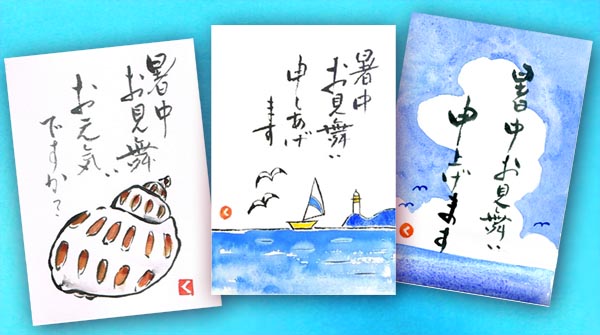 暑中
お見舞い
お元気
ですか？
く
暑中
お見舞い
申しあげ
ます
く
暑中お見舞い
申上げます
く